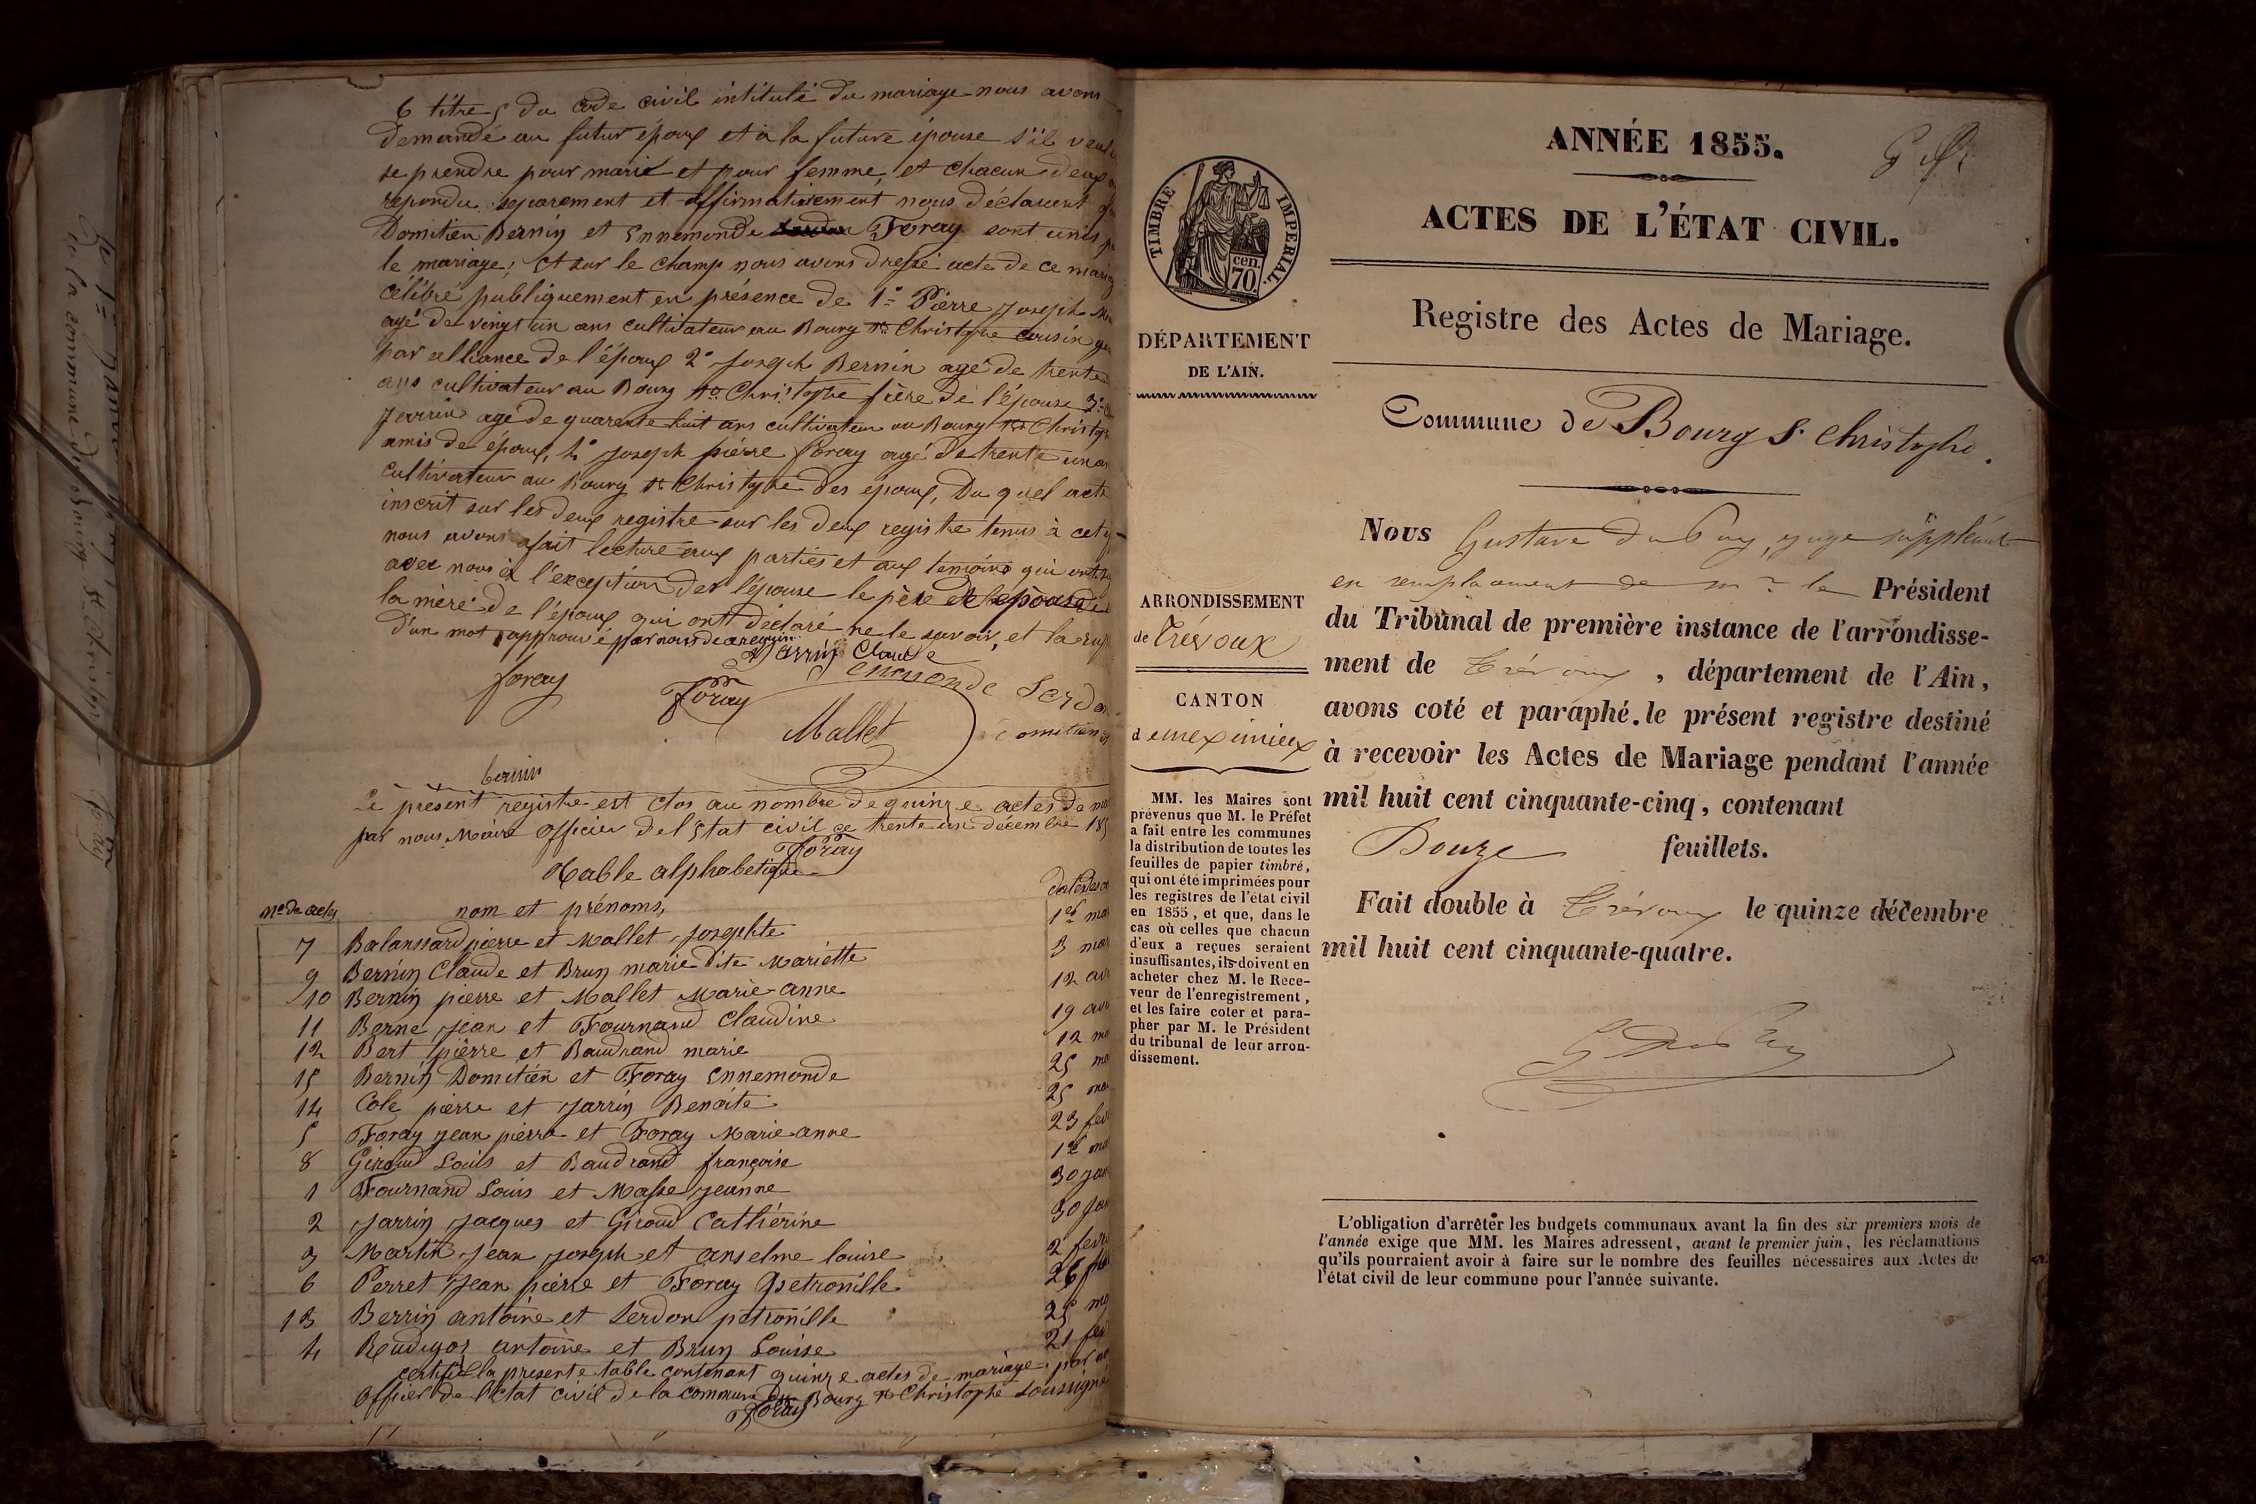 6 titre 5 du code civil intitulé du mariage nous avons
demandé au futur époux et à la future épouse s'il veule
se prendre pour marié et pour femme, et chacun deux
repondu separement et affirmativement nous déclarent
Domitien Bernin et Ennemonde Foray sont unis p
le mariage; et sur le champ nous avons dressé acte de ce mariag
célébré publiquement en présence de 1° Pierre Joseph
agé de vingt un ans cultivateur au Bourg St Christophe cousin
par alliance de l'époux 2° Joseph Bernin agé de trente
ans cultivateur au Bourg St Christophe frère de l'épouse 3°
Jarrin agé de quarente huit ans cultivateur au Bourg St Christop
amis de epoux, 4° Joseph pierre foray agé de trente un an
cultivateur au Bourg St Christophe des epoux, Du quel acte
inscrit sur les deux registre sur les deux registre tenus à cet
nous avons fait lecture aux parties et aux temoins qui ont
avec nous à l'exception der l'épouse le père de l'epouse
la mère de l'époux qui ont déclaré ne le savoir, et la
d'un mot approuvé par nous
Jarrin Claude
foray
Foray
Ennemonde Serdon
Mallet
Domitien
bernin
Le present registre est clos au nombre de quinze actes de
par nous Maire officier de l'Etat civil ce trente un décembre 185
Foray
Table alphabetique
no de actes nom et prénoms, Date des
7 Balanssard pierre et Mallet Josephte 1er mar
9 Bernin Claude et Brun marie dite Mariette 3 mar
10 Bernin pierre et Mallet Marie anne 12 avr
11 Berne Jean et Fournand Claudine 19 avr
12 Bert pierre et Baudrand marie 12 ma
15 Bernin Domitien et Foray Ennemonde 25 ma
14 Cole pierre et Jarrin Benoite 25 ma
5 Foray jean pierre et Foray Marie anne 23 fev
8 Giroud Louis et Baudrand françoise 1er ma
1 Fournand Louis et Masse jeanne 30 jan
2 Jarrin Jacques et Giroud Catherine 30 jan
3 Martin Jean Joseph et anselme louise 2 fevr
6 Perret Jean pierre et Foray Petronille 26
13 Perrin antoine et Serdon petronille 25 ma
4 Rudigoz antoine et Brun Louise 21 fev
certifié la presente table contenant quinze actes de mariage par
officier de l'état civil de la commune du Bourg St Christophe soussigné
Foray
TIMBRE IMPERIAL.
cen.
70.
DÉPARTEMENT
DE L'AIN.
ARRONDISSEMENT
de Trévoux
CANTON
de meximieux
MM. les Maires sont
prévenus que M. le Préfet
a fait entre les communes
la distribution de toutes les
feuilles de papier timbré,
qui ont été imprimées pour
les registres de l'état civil
en 1855, et que, dans le
cas où celles que chacun
d'eux a reçues seraient
insuffisantes, ils doivent en
acheter chez M. le Rece-
veur de l'enregistrement,
et les faire coter et para-
pher par M. le Président
du tribunal de leur arron-
dissement.
ANNÉE 1855.
ACTES DE L'ÉTAT CIVIL.
Registre des Actes de Mariage.
Commune de Bourg St Christophe.
Nous Gustave du Puy, juge suppléant
en remplacement de mr le Président
du Tribunal de première instance de l'arrondisse-
ment de Trévoux, département de l'Ain,
avons coté et paraphé le présent registre destiné
à recevoir les Actes de Mariage pendant l'année
mil huit cent cinquante-cinq, contenant
Douze feuillets.
Fait double à Trévoux le quinze décembre
mil huit cent cinquante-quatre.
G du Puy
L'obligation d'arrêter les budgets communaux avant la fin des six premiers mois de
l'année exige que MM. les Maires adressent, avant le premier juin, les réclamations
qu'ils pourraient avoir à faire sur le nombre des feuilles nécessaires aux Actes de
l'état civil de leur commune pour l'année suivante.